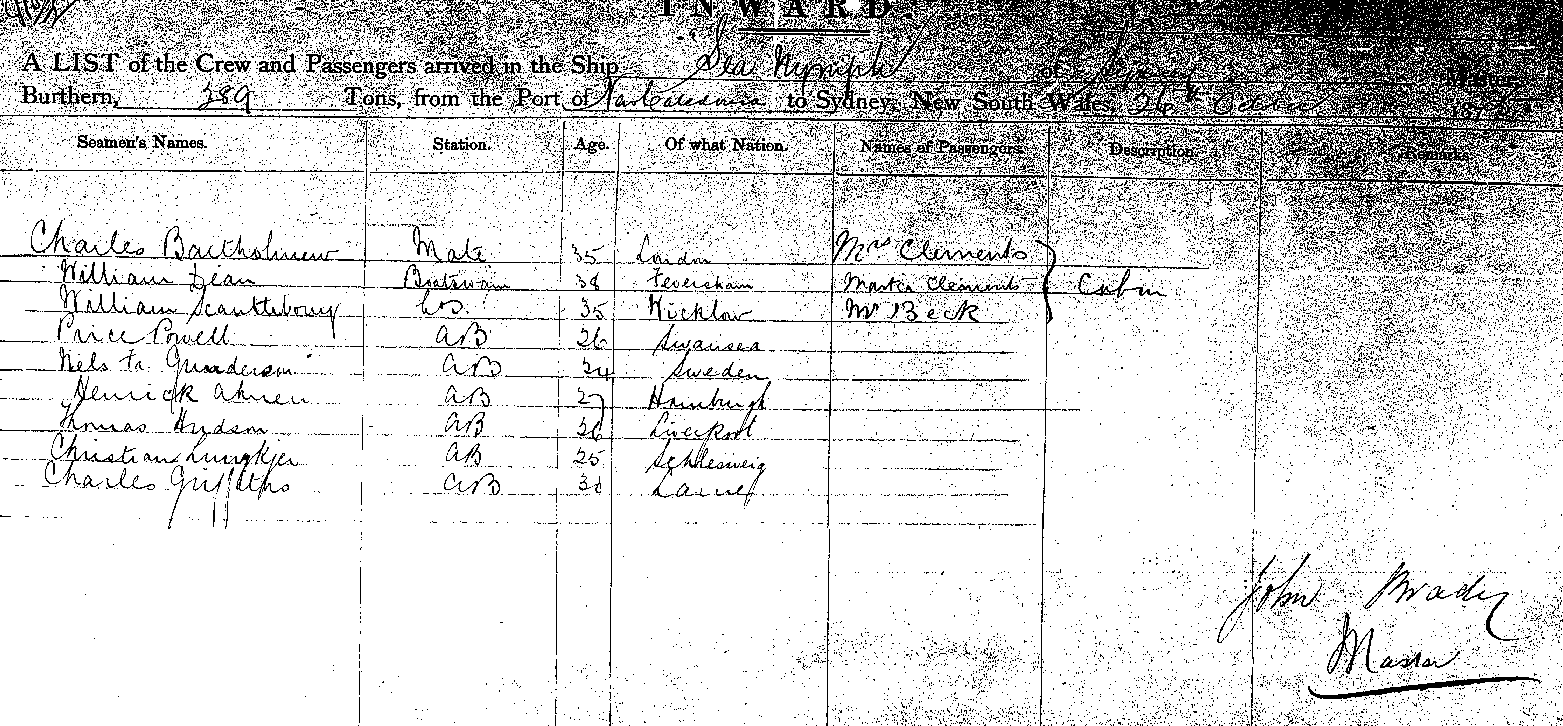 INWARD.
A LIST of the Crew and Passengers arrived in the Ship Sea Nymph of
Burthern, 389 Tons, from the Port of New Caledonia to Sydney, New South Wales, 26th 187
Seamen's Names. Station. Age. Of what Nation. Names of Passengers. Description. Remarks
Charles Bartholmew Mate 35 London Mrs Clements
William Dean Boatswain 38 Feversham Master Clements Cabin
William Scantlebury 35 Wicklow Mr Beck
Price Powell AB 26 Swansea
Nels Gunderson AB 24 Sweden
Henrick AB 27 Hamburgh
Thomas Hudson AB Liverpool
Christian AB 25 Schlesweig
Charles Griffiths AB
John Brady
Master